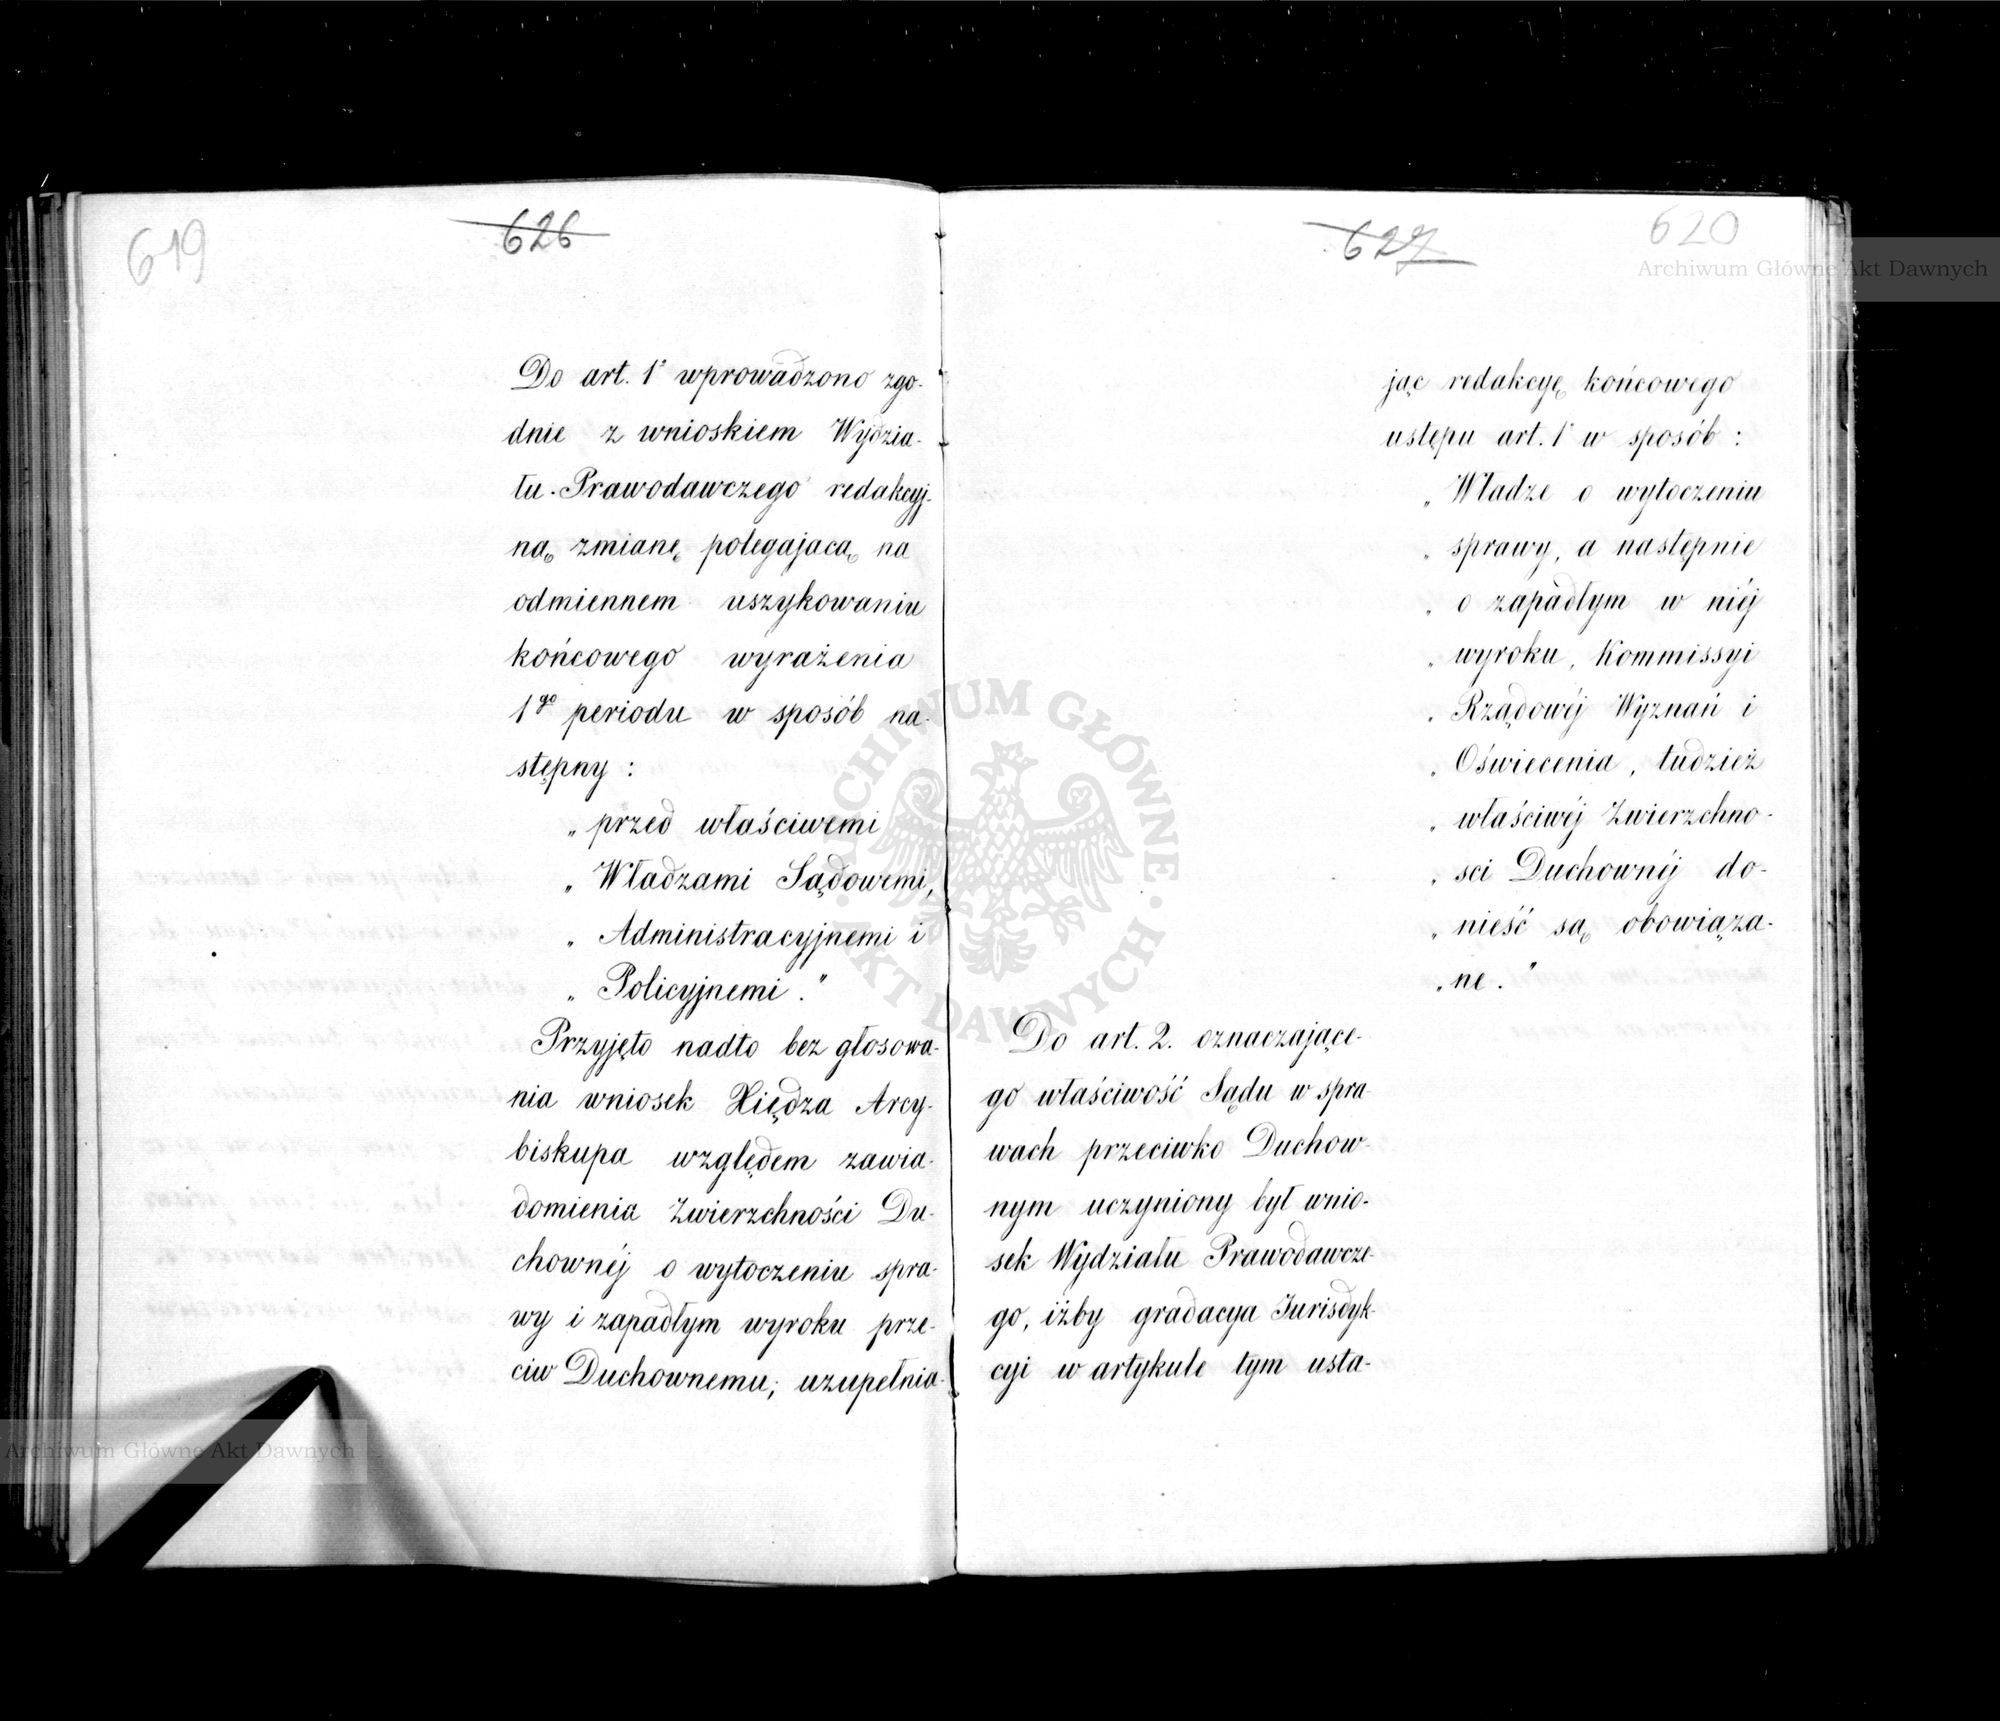 619
626
Do art. 1º wprowadzono zgo-
dnie z wnioskiem Wydzia-
łu Prawodawczego redakcyj-
ną zmianę polegającą na
odmiennem uszykowaniu
końcowego wyrażenia
1go periodu w sposób na-
stępny :
„ przed właściwemi
„ Władzami Sądowemi,
„ Administracyjnemi i
„ Policyjnemi."
Przyjęto nadto bez głosowa-
nia wniosek Xiędza Arcy-
biskupa względem zawia-
domienia Zwierzchności Du-
chownéj o wytoczeniu spra-
wy i zapadłym wyroku prze-
ciw Duchownemu; uzupełnia-
627
620
jąc redakcyę końcowego
ustępu art. 1º w sposób :
„ Władze o wytoczeniu
„ sprawy, a następnie
„ o zapadłym w niéj
„ wyroku, Kommissyi
„ Rządowéj Wyznań i
„ Oświecenia, tudzież
„ właściwéj Zwierzchno-
„ sci Duchownéj do-
„ nieść są obowiąza-
„ ne."
Do art. 2. oznaczające-
go właściwość Sądu w spra-
wach przeciwko Duchow-
nym uczyniony był wnio-
sek Wydziału Prawodawcze-
go, iżby gradacya Jurisdyk-
cyi w artykule tym usta-
Archiwum Główne Akt Dawnych
Archiwum Główne Akt Dawnych
ARCHIWUM GŁÓWNE · AKT DAWNYCH ·